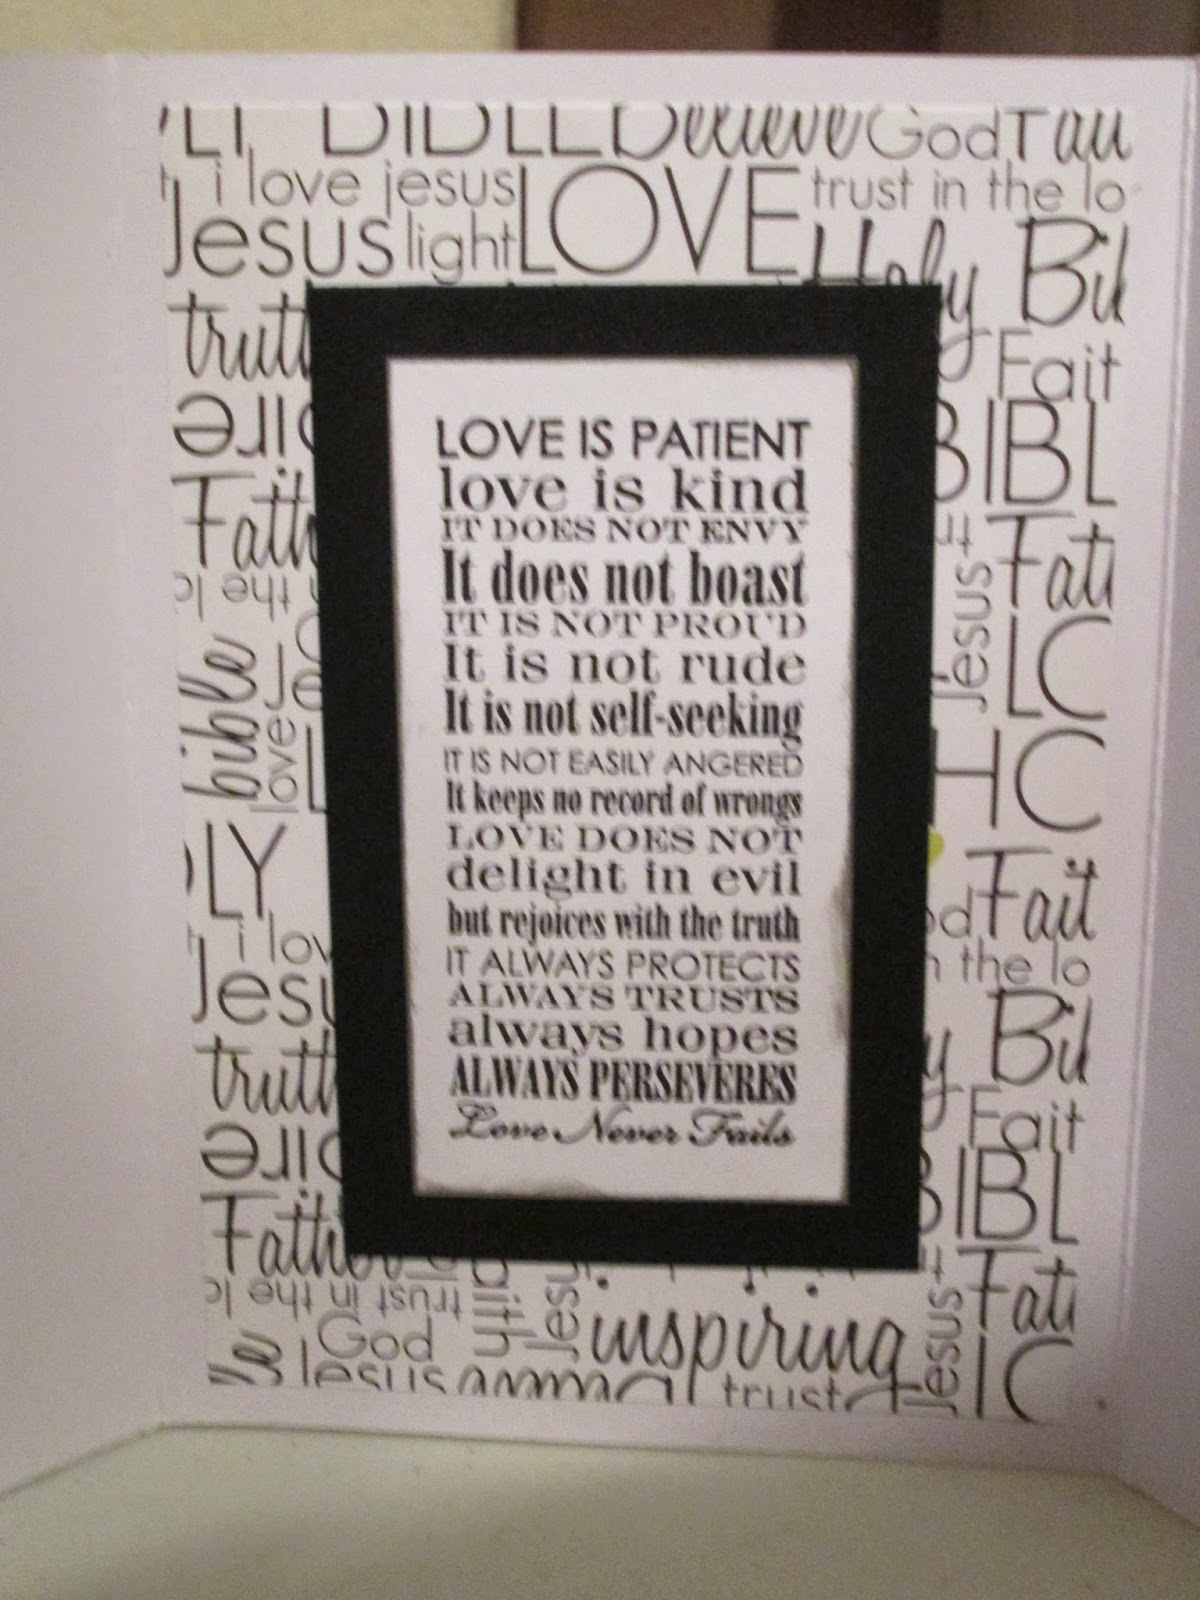 BIBLE Believe God
i love jesus LOVE trust in the lo
Jesus light Holy Bil
truth
Fait
LOVE IS PATIENT
love is kind
IT DOES NOT ENVY
It does not boast
IT IS NOT PROUD
It is not rude
It is not self-seeking
IT IS NOT EASILY ANGERED
It keeps no record of wrongs
LOVE DOES NOT
delight in evil
but rejoices with the truth
IT ALWAYS PROTECTS
ALWAYS TRUSTS
always hopes
ALWAYS PERSEVERES
Love Never Fails
BIBL
Fath
Jesus
the lo
bible
love
LY
i lov
Fait
Jesu
the lo
Bil
truth
Fait
IBL
Father
trust in the lo
God
Jesus
inspiring
Jesus
trust